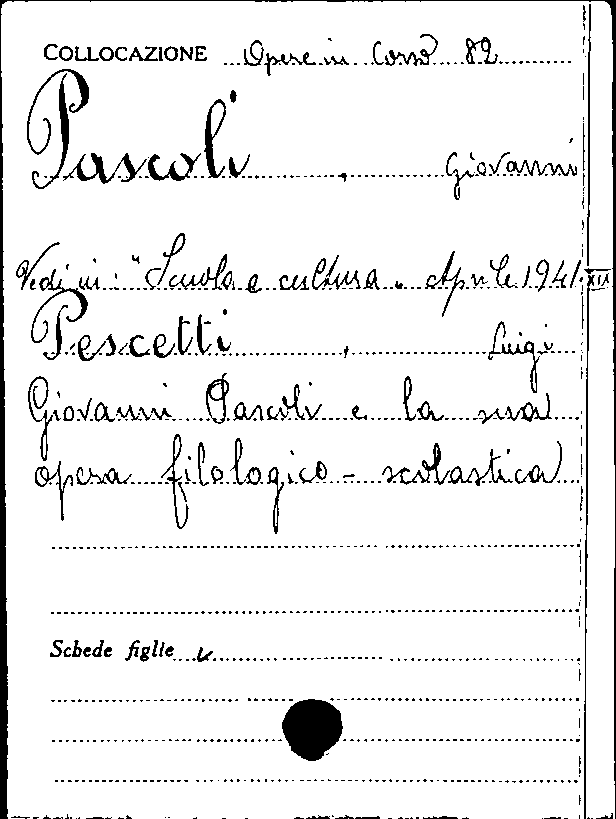 COLLOCAZIONE Opere in Corso 82
Pascoli, Giovanni
Vedi in: "Scuola e cultura" Aprile 1941.XIX
Pescetti, Luigi
Giovanni Pascoli e la sua
opera filologico-scolastica
Schede figlie v